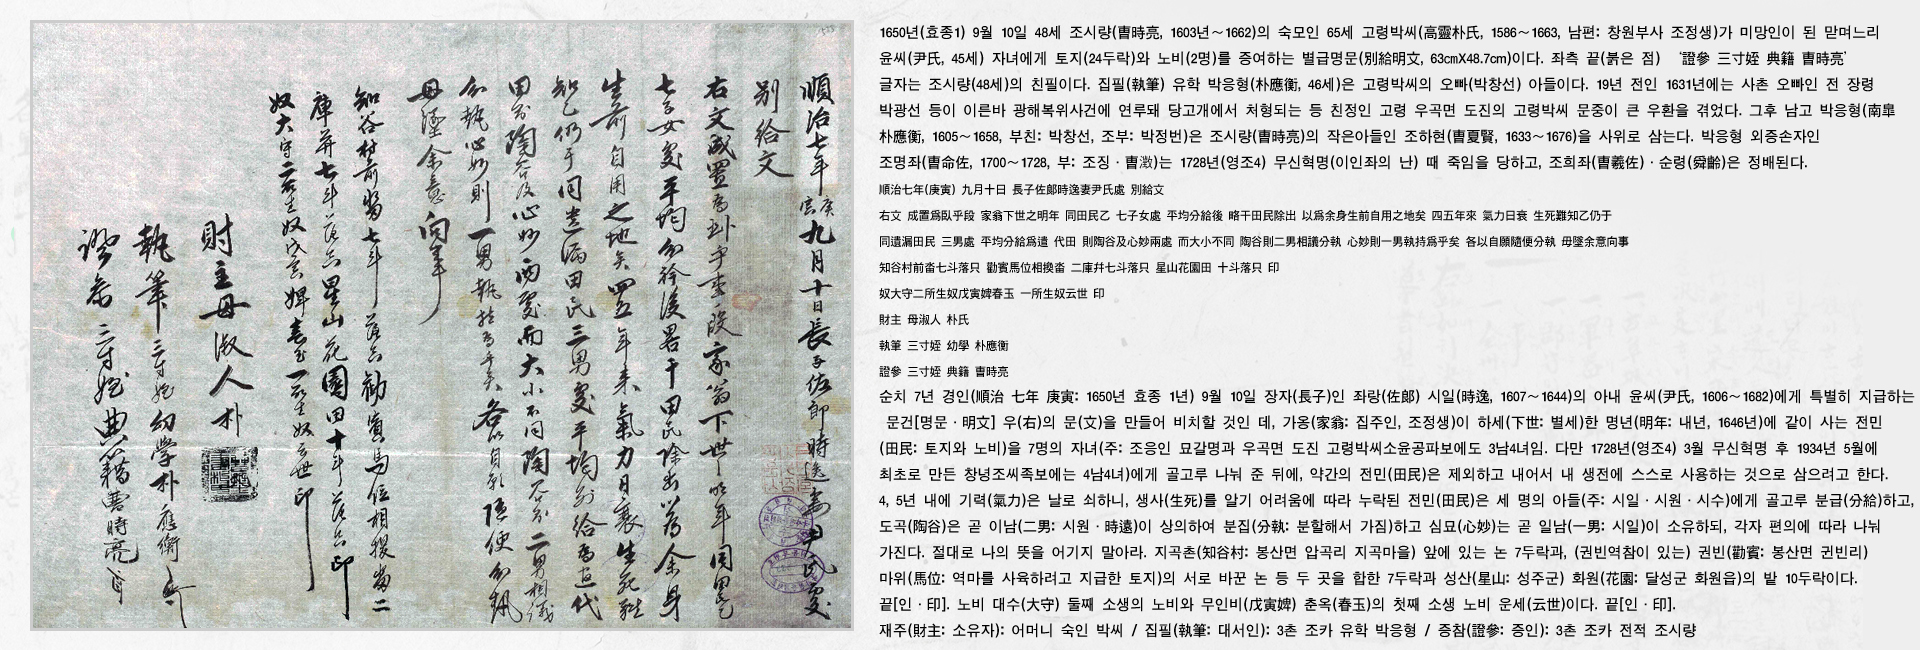 順治七年庚寅九月十日長子佐郞時逸妻尹氏處
別給文
右文成置爲臥乎事段家翁下世之明年同田民乙
七子女處平均分給後畧干田民除出以爲余身
生前自用之地矣四五年來氣力日衰生死難
知乙仍于同遺漏田民三男處平均分給爲遣代
田則陶谷及心妙兩處而大小不同陶谷則二男相議
分執心妙則一男執持爲乎矣各以自願隨便分執
毋墜余意向事
知谷村前畓七斗落只勸賓馬位相換畓二
庫幷七斗落只星山花園田十斗落只印
奴大守二所生奴戊寅婢春玉一所生奴云世印
財主母淑人朴
執筆三寸姪幼學朴應衡
證參三寸姪典籍曺時亮
1650년(효종1) 9월 10일 48세 조시량(曺時亮, 1603년~1662)의 숙모인 65세 고령박씨(高靈朴氏, 1586~1663, 남편: 창원부사 조정생)가 미망인이 된 맏며느리
윤씨(尹氏, 45세) 자녀에게 토지(24두락)와 노비(2명)를 증여하는 별급명문(別給明文, 63cmX48.7cm)이다. 좌측 끝(붉은 점) '證參 三寸姪 典籍 曺時亮'
글자는 조시량(48세)의 친필이다. 집필(執筆) 유학 박응형(朴應衡, 46세)은 고령박씨의 오빠(박창선) 아들이다. 19년 전인 1631년에는 사촌 오빠인 전 장령
박광선 등이 이른바 광해복위사건에 연루돼 당고개에서 처형되는 등 친정인 고령 우곡면 도진의 고령박씨 문중이 큰 우환을 겪었다. 그후 남고 박응형(南皐
朴應衡, 1605~1658, 부친: 박창선, 조부: 박정번)은 조시량(曺時亮)의 작은아들인 조하현(曺夏賢, 1633~1676)을 사위로 삼는다. 박응형 외증손자인
조명좌(曺命佐, 1700~1728, 부: 조징 · 曺澂)는 1728년(영조4) 무신혁명(이인좌의 난) 때 죽임을 당하고, 조희좌(曺羲佐) · 순령(舜齡)은 정배된다.
順治七年(庚寅) 九月十日 長子佐郞時逸妻尹氏處 別給文
右文 成置爲臥乎段 家翁下世之明年 同田民乙 七子女處 平均分給後 略干田民除出 以爲余身生前自用之地矣 四五年來 氣力日衰 生死難知乙仍于
同遺漏田民 三男處 平均分給爲遣 代田 則陶谷及心妙兩處 而大小不同 陶谷則二男相議分執 心妙則一男執持爲乎矣 各以自願隨便分執 毋墜余意向事
知谷村前畓七斗落只 勸賓馬位相換畓 二庫幷七斗落只 星山花園田 十斗落只 印
奴大守二所生奴戊寅婢春玉 一所生奴云世 印
財主 母淑人 朴氏
執筆 三寸姪 幼學 朴應衡
證參 三寸姪 典籍 曺時亮
순치 7년 경인(順治 七年 庚寅: 1650년 효종 1년) 9월 10일 장자(長子)인 좌랑(佐郞) 시일(時逸, 1607~1644)의 아내 윤씨(尹氏, 1606~1682)에게 특별히 지급하는
문건[명문 · 明文] 우(右)의 문(文)을 만들어 비치할 것인 데, 가옹(家翁: 집주인, 조정생)이 하세(下世: 별세)한 명년(明年: 내년, 1646년)에 같이 사는 전민
(田民: 토지와 노비)을 7명의 자녀(주: 조응인 묘갈명과 우곡면 도진 고령박씨소윤공파보에도 3남4녀임. 다만 1728년(영조4) 3월 무신혁명 후 1934년 5월에
최초로 만든 창녕조씨족보에는 4남4녀)에게 골고루 나눠 준 뒤에, 약간의 전민(田民)은 제외하고 내어서 내 생전에 스스로 사용하는 것으로 삼으려고 한다.
4, 5년 내에 기력(氣力)은 날로 쇠하니, 생사(生死)를 알기 어려움에 따라 누락된 전민(田民)은 세 명의 아들(주: 시일 · 시원 · 시수)에게 골고루 분급(分給)하고,
도곡(陶谷)은 곧 이남(二男: 시원 · 時遠)이 상의하여 분집(分執: 분할해서 가짐)하고 심묘(心妙)는 곧 일남(一男: 시일)이 소유하되, 각자 편의에 따라 나눠
가진다. 절대로 나의 뜻을 어기지 말아라. 지곡촌(知谷村: 봉산면 압곡리 지곡마을) 앞에 있는 논 7두락과, (권빈역참이 있는) 권빈(勸賓: 봉산면 권빈리)
마위(馬位: 역마를 사육하려고 지급한 토지)의 서로 바꾼 논 등 두 곳을 합한 7두락과 성산(星山: 성주군) 화원(花園: 달성군 화원읍)의 밭 10두락이다.
끝[인 · 印]. 노비 대수(大守) 둘째 소생의 노비와 무인비(戊寅婢) 춘옥(春玉)의 첫째 소생 노비 운세(云世)이다. 끝[인 · 印].
재주(財主: 소유자): 어머니 숙인 박씨 / 집필(執筆: 대서인): 3촌 조카 유학 박응형 / 증참(證參: 증인): 3촌 조카 전적 조시량